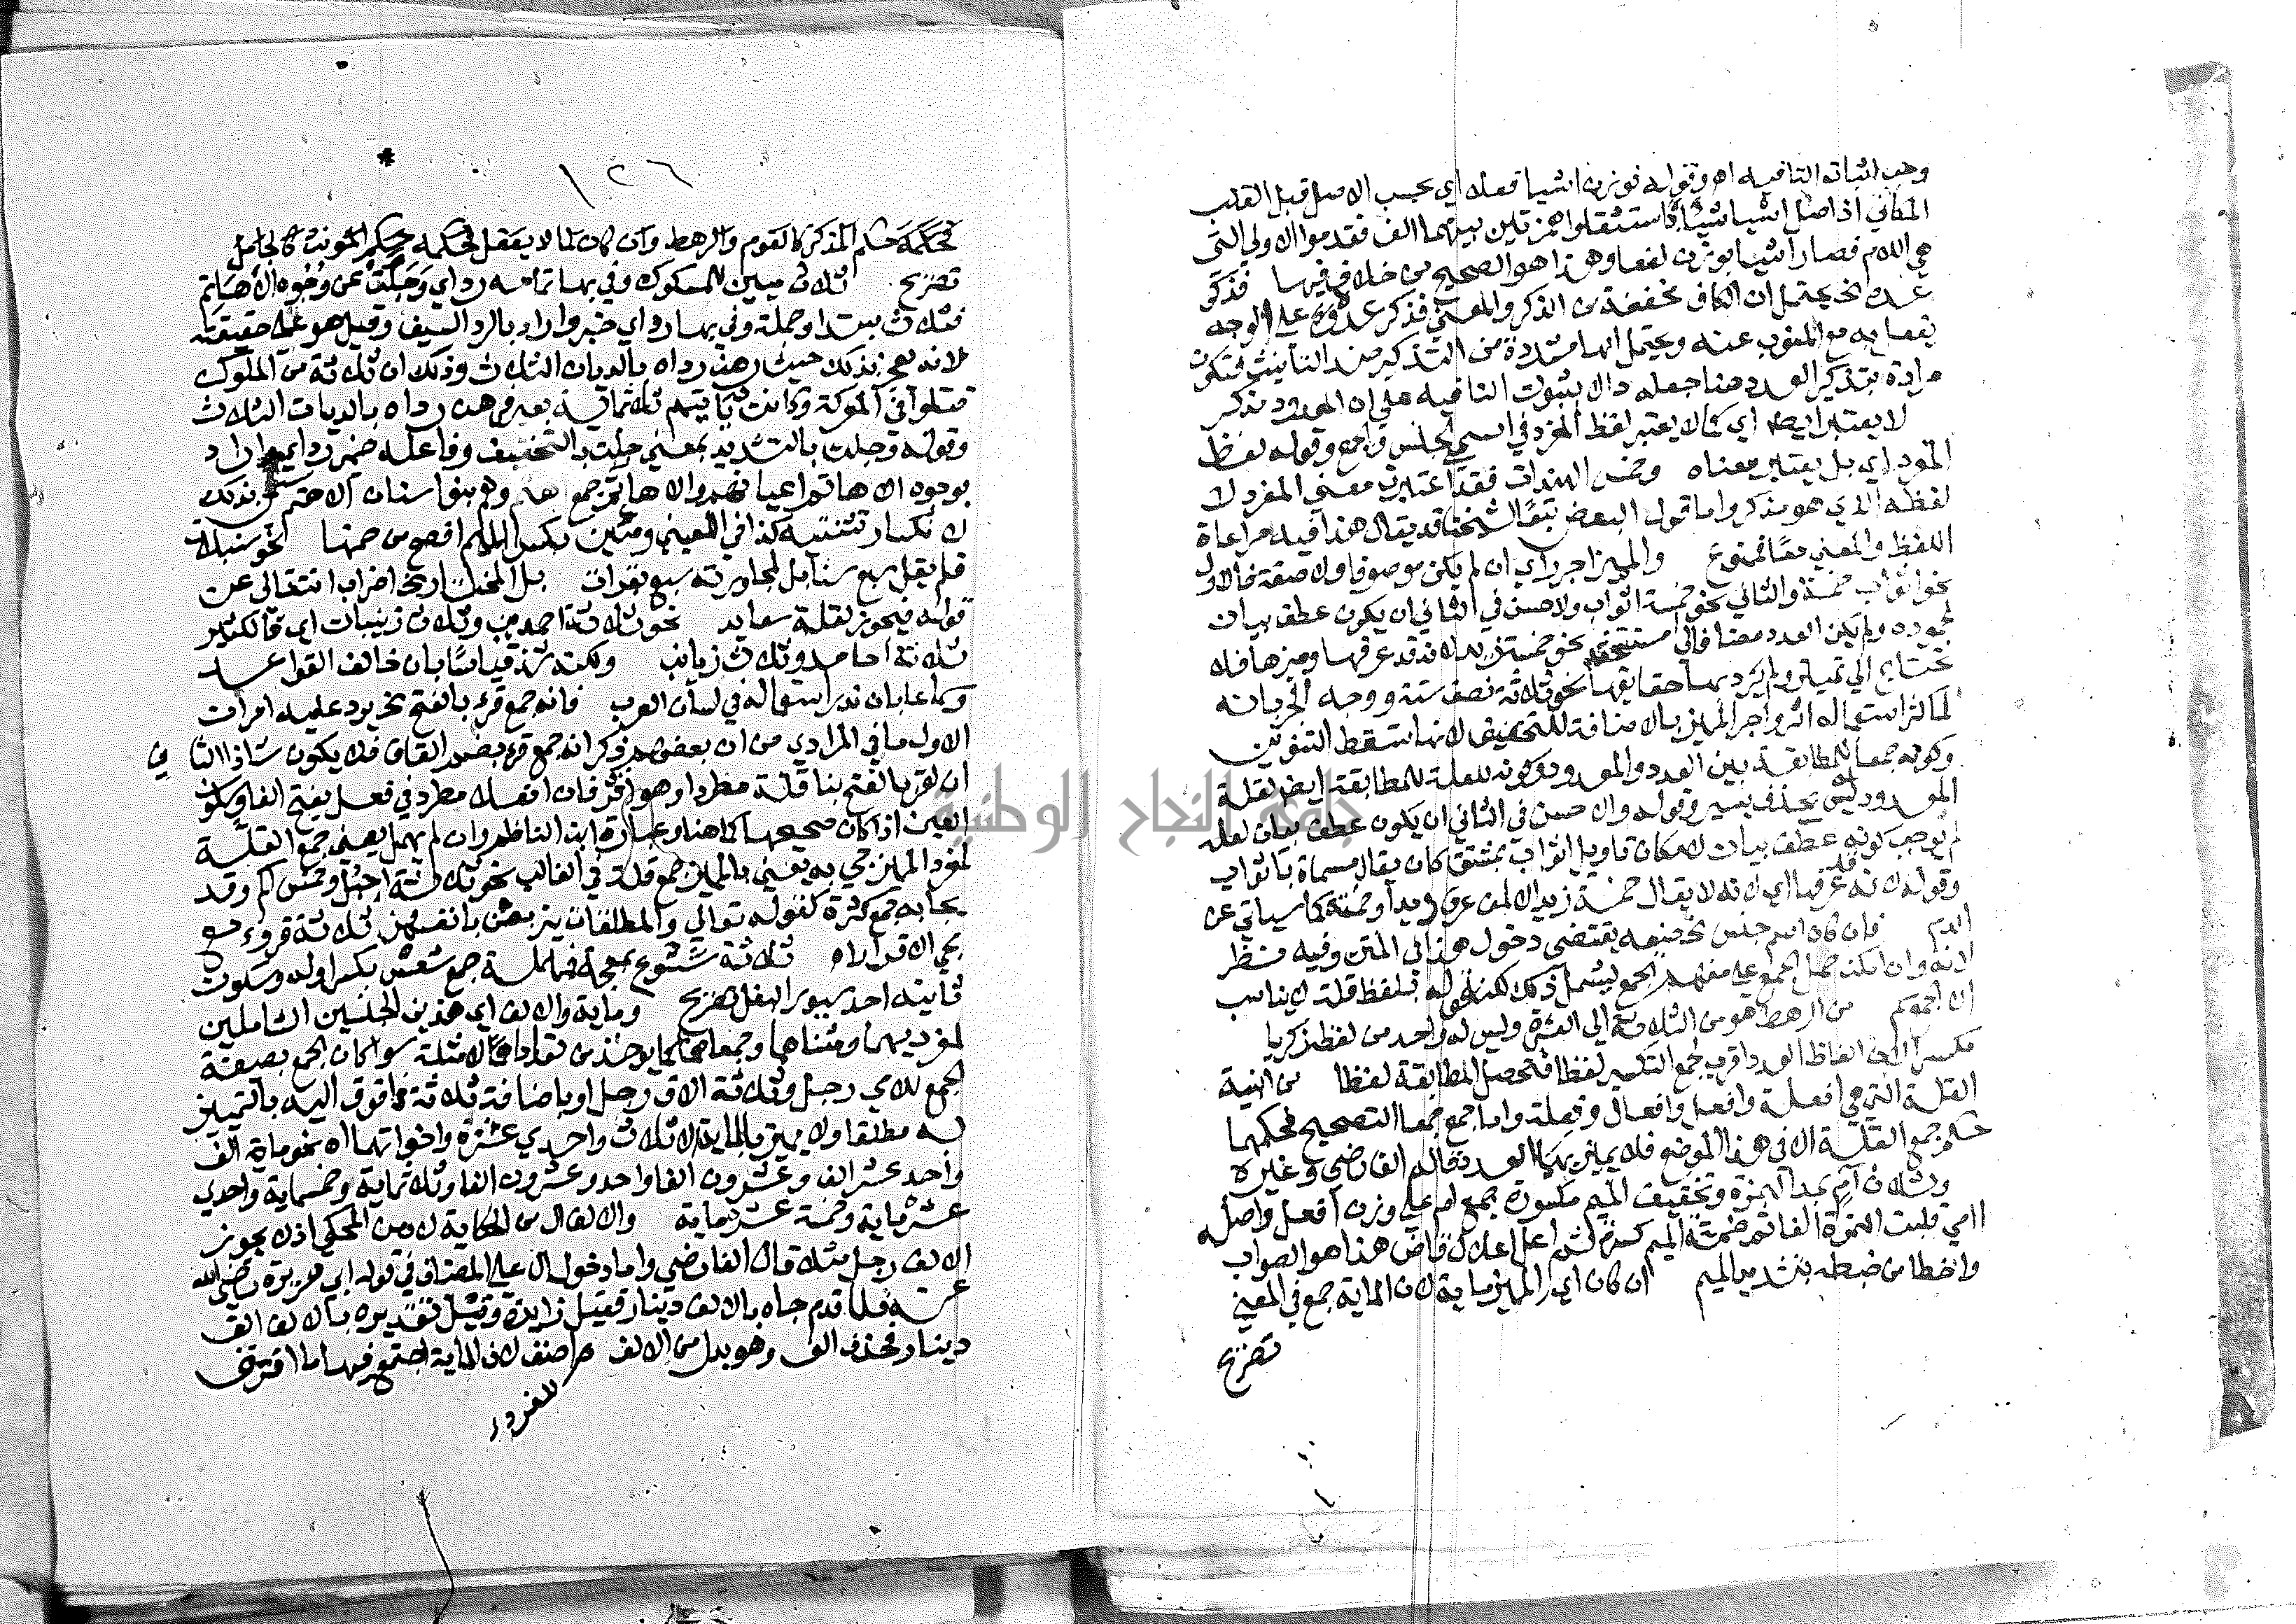 وجب اثباته التا فيه اهـ وقوله فوزن اشيا فعله اي بحسب الاصل قبل القلب
المكاني اذ اصل اشيا شيئاء استثقلوا همزتين بينهما الف فقدموا الاولي التي
هي اللام فصار اشيا بوزن لفعا وهذا هو الصحيح من خلاف فيها فذكر
عدده الخ يحتمل ان الكاف مخففة من الذكر والمعني فذكر عدده علي الوجه
ويحتمل انها مشددة من التذكير ضد التانيث فتكون
مرادة بتذكير العدد هنا جعله دالا بثبوت التا فيه علي ان المعدود مذكر
لا يعتبر ايضا اي كما لا يعتبر لفظ المفرد في اسمي الجنس والجمع وقوله لفظ
المفرد اي بل يعتبر معناه وخمس الهندات فقد اعتبرت معني المفرد لا
لفظه الذي هو مذكر واما قول البعض تبعا لشيخنا قد يقال هذا فيه مراعاة
اللفظ والمعني معا فممنوع والمميز اجرر اي ان لم يكن موصوفا ولا صفة فالاول
نحو اثواب خمسة والثاني نحو خمسة اثواب والاحسن في الثاني ان يكون عطف بيان
لجموده ولم يكن العدد مضافا الي مستحقه نحو خمسة زيد لانه قد عرفها وميزها فلا
تحتاج الي تمييز ولم يرد بها حقايقها نحو ثلاثة نصف ستة ووجه الجر بانه
لما كثر استعماله اثروا جر المميز بالاضافة للتخفيف لانها تسقط التنوين
وكونه جمعا للمطابقة بين العدد والمعدود وكونه للقلة للمطابقة ايضا لقلة
المعدود ليس بحذف يسير وقوله والاحسن في الثاني ان يكون عطف بيان لعله
لم يوجب كونه عطف بيان لامكان تاويل اثواب بمشتق كان يقال مسماة باثواب
وقوله لانه قد عرفها اي لانه لا يقال خمسة زيد الا لمن عرف زيدا وخمسته كما سياتي عن
الدم فان كان اسم جنس الخ صنيعه يقتضي دخول هذا في المتن وفيه نظر
لانه وان امكن حمل الجمع علي مفهم الجمع ليشمل ذلك لكن قوله بلفظ قلة لا يناسب
الا الجموع من الرهط هو من الثلاثة الي العشرة وليس له واحد من لفظه زكريا
مكسرا لان الفاظ العدد اقرب لجمع التكسير لفظا فتحصل المطابقة لفظا من ابنية
القلة التي هي افعلة وافعل وافعال وفعلة واما جمع جمعا التصحيح فحكمهما
حكم جمع القلة الا في هذا الموضع فلا يميز بهما العدد قاله الفارضي وغيره
وثلاث آم بمد الهمزة وتخفيف الميم مكسورة جمع ام علي وزن افعل واصله
اامي قلبت الهمزة الفا ثم ضمة الميم كسرة ثم اعل اعلال قاض هذا هو الصواب
واخطا من ضبطه بتشديد الميم ان كان اي المميز ماية لان الماية جمع في المعني
تصريح
١٢٦
فحكمه حكم المذكر كالقوم والرهط وان كان لما لا يعقل فحكمه حكم المونث كالجامل
تصريح ثلاث مبين للملوك وفي بها تمامه رداي وجلت عن وجوه الاهاتم
فثلاث مبتدا وجملة وفي بها رداي خبر واراد بالردا السيف وقيل هو علي حقيقته
لانه مدح بذلك حيث رهن رداه بالديات الثلاث وذلك ان ثلاثة من الملوك
قتلوا في المعركة وكانت دياتهم ثلاثماية بعير فرهن رداه بالديات الثلاث
وقوله وجلت بالتشديد بمعني جلت بالتخفيف وفاعله ضمير رداي واراد
بوجوه الاهاتم اعيانهم والاهاتم جمع اهتم وهم بنوا سنان الاهتم سمي بذلك
لانكسار ثنيته كذا في العيني ومئين بكسر الميم افصح من ضمها نحو سنبلات
فلم يقل سبع سنابل لمجاورته سبع بقرات بل المختار الخ اضراب انتقالي عن
قوله فيجوز لقلة سعايد نحو ثلاثة احمدين وثلاث زينبات اي فالكثير
ثلاثة احامد وثلاث زيانب ولكنه شذ قياسا بان خالف القواعد
وسماعا بان ندر استعماله في لسان العرب فانه جمع قرء بالفتح الخ يرد عليه امران
الاول ما في المرادي من ان بعضهم ذكر انه جمع قرء بضم القاف فلا يكون شاذا الثاني
ان لقرء بالفتح بنا قلة مطردا وهو اقرؤ فان افعلا مطرد في فعل بفتح الفا وسكون
العين اذا كان صحيحها كما هنا وعبارة ابن الناظم وان لم يهمل يعني جمع القلة
لمفرد المميز جي به يعني بالمميز جمع قلة في الغالب نحو ثلاثة اجبل وخمس اكم وقد
يجا به جمع كثرة كقوله تعالي والمطلقات يتربصن بانفسهن ثلاثة قروء مع
مجي الاقراء اهـ ثلاثة شسوع بمعجمة فمهملة جمع شسع بكسر اوله وسكون
ثانيه احد سيور النعل تصريح وماية والالف اي هذين الجنسين الشاملين
لمفرديهما ومثناهما وجمعهما كما يوخذ من تعداده الامثلة سوا كان الجمع بصيغة
الجمع كالاي رجل وثلاثة الاف رجل او باضافة ثلاثة فما فوق اليه بالتمييز
له مطلقا ولا يميز بالماية الا ثلاث واحدي عشرة واخواتهما اهـ نحو ماية الف
واحد عشر الف وعشرون الفا واحد وعشرون الفا وثلاثماية وخمسماية واحدي
عشرماية وخمسة عشر ماية والالف ال من الحكاية لا من المحكي اذ لا يجوز
الالف رجل مثلا قال الفارضي واما دخول ال علي المضاف في قوله ابي هريرة رضي الله
عنه فلما قدم جاه بالالف دينار فقيل زايدة وقيل تقديره بالالف الف
دينار فحذف الف وهو بدل من الالف صنف لان الماية اجتمع فيها ما افترق
للفرد
جامعة النجاح الوطنية